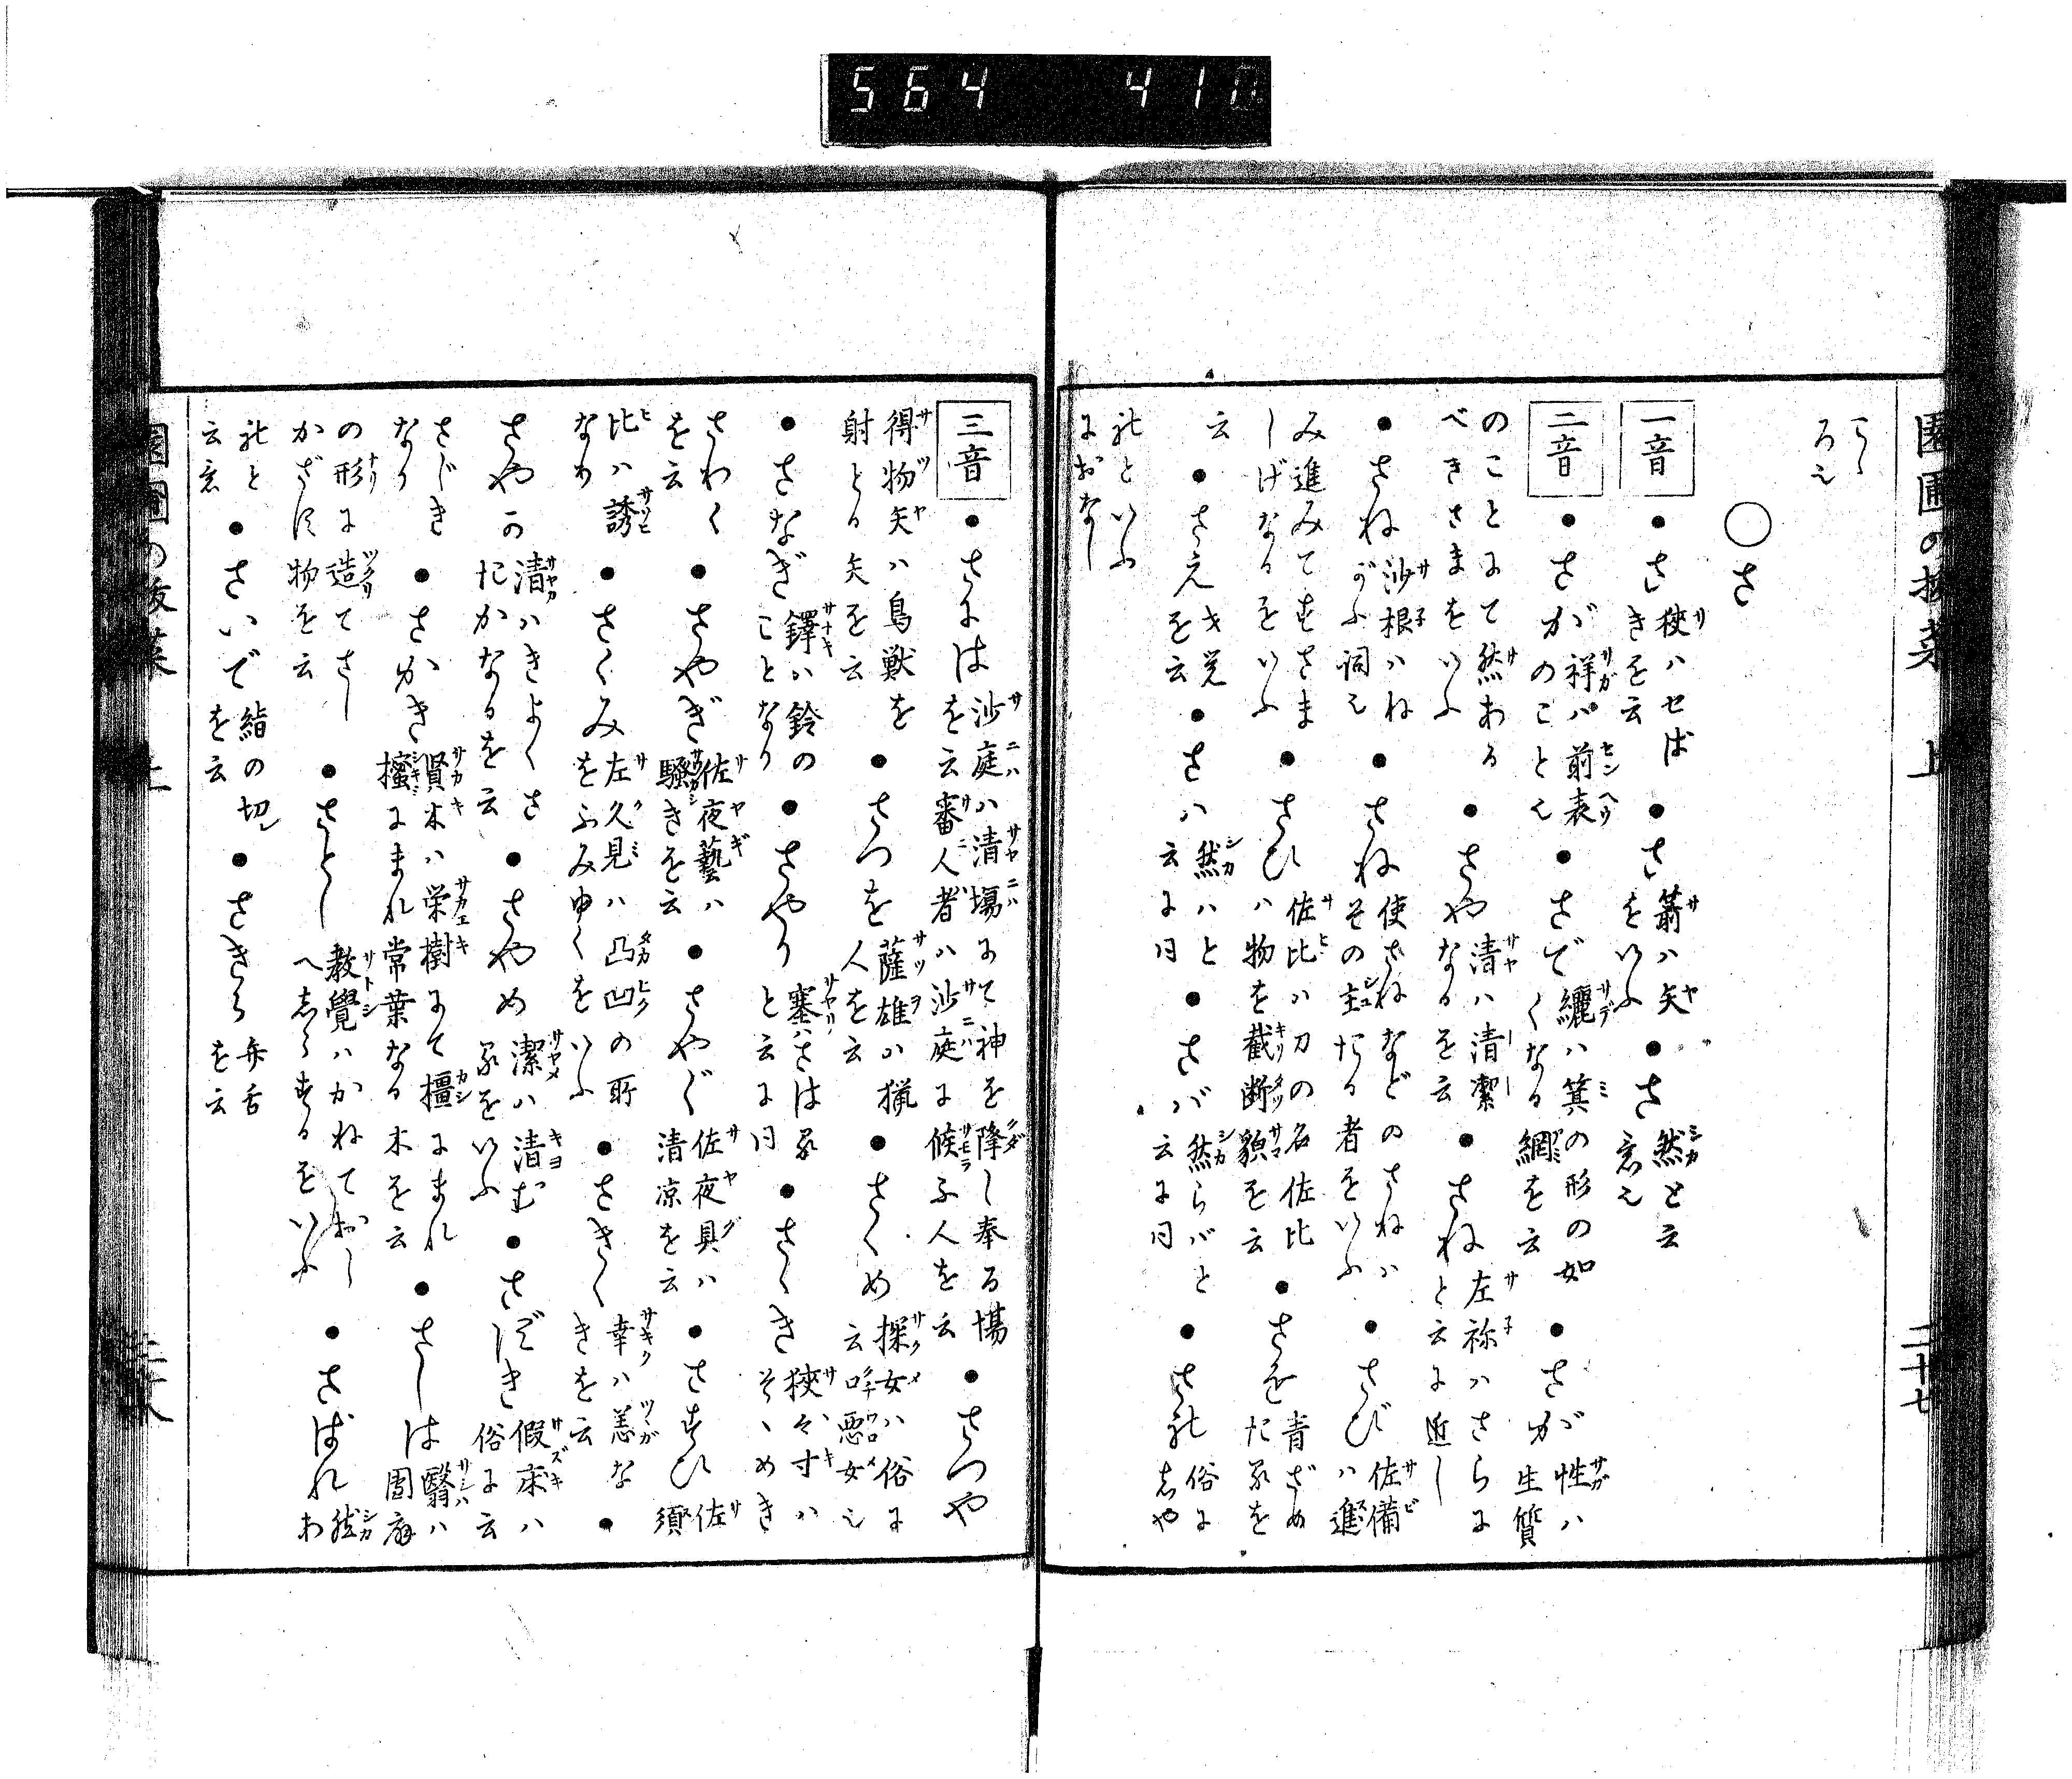 564 410
園圃の抜菜 上 二十七
こゝ
ろえ
○さ
一音 ●さ 狭ハせばきを云 ●さ 箭ハ矢をいふ ●さ 然と云意也
二音 ●さが 祥ハ前表のこと也 ●さで 纚ハ箕の形の如くなる網を云 ●さが 性ハ生質
のことにて然あるべきさまをいふ ●さや 清ハ清潔なるを云 ●さね 左祢ハさらにと云に近し
●さね 沙根ハねがふ詞也 ●さね 使さねなどのさねハその主たる者をいふ ●さび 佐備ハ進
み進みてすさましげなるをいふ ●さひ 佐比ハ刀の名佐比ハ物を截断貌を云 ●さを 青ざめたるを
云 ●さえ 才覚を云 ●さハ 然ハと云に同 ●さバ 然らバと云に同 ●され 俗にしや
れといふにおなじ
三音 ●さには 沙庭ハ清場にて神を降し奉る場を云審人者ハ沙庭に候ふ人を云 ●さつや
得物矢ハ鳥獣を射とる矢を云 ●さつを 薩雄ハ猟人を云 ●さくめ 探女ハ俗に云悪女也
●さなぎ 鐸ハ鈴のことなり ●さやり 塞ハさはると云に同 ●さゝき 狭々寸ハそゝめき
さわくを云 ●さやぎ 佐夜藝ハ騒きを云 ●さやぐ 佐夜具ハ清凉を云 ●さすひ 佐須
比ハ誘なり ●さくみ 左久見ハ凸凹の所をふみゆくをいふ ●さきく 幸ハ恙なきを云 ●
さやか 清ハきよくさだかなるを云 ●さやめ 潔ハ清むるをいふ ●さずき 假床ハ俗に云
さじきなり ●さかき 賢木ハ栄樹にて橿にまれ樒にまれ常葉なる木を云 ●さしは 翳ハ團扇
の形に造てさしかざす物を云 ●さとし 教覺ハかねておしへしらするをいふ ●さばれ 然あ
れと云意 ●さいで 結の切を云 ●さきら 弁舌を云
園圃の抜菜 上 二十八